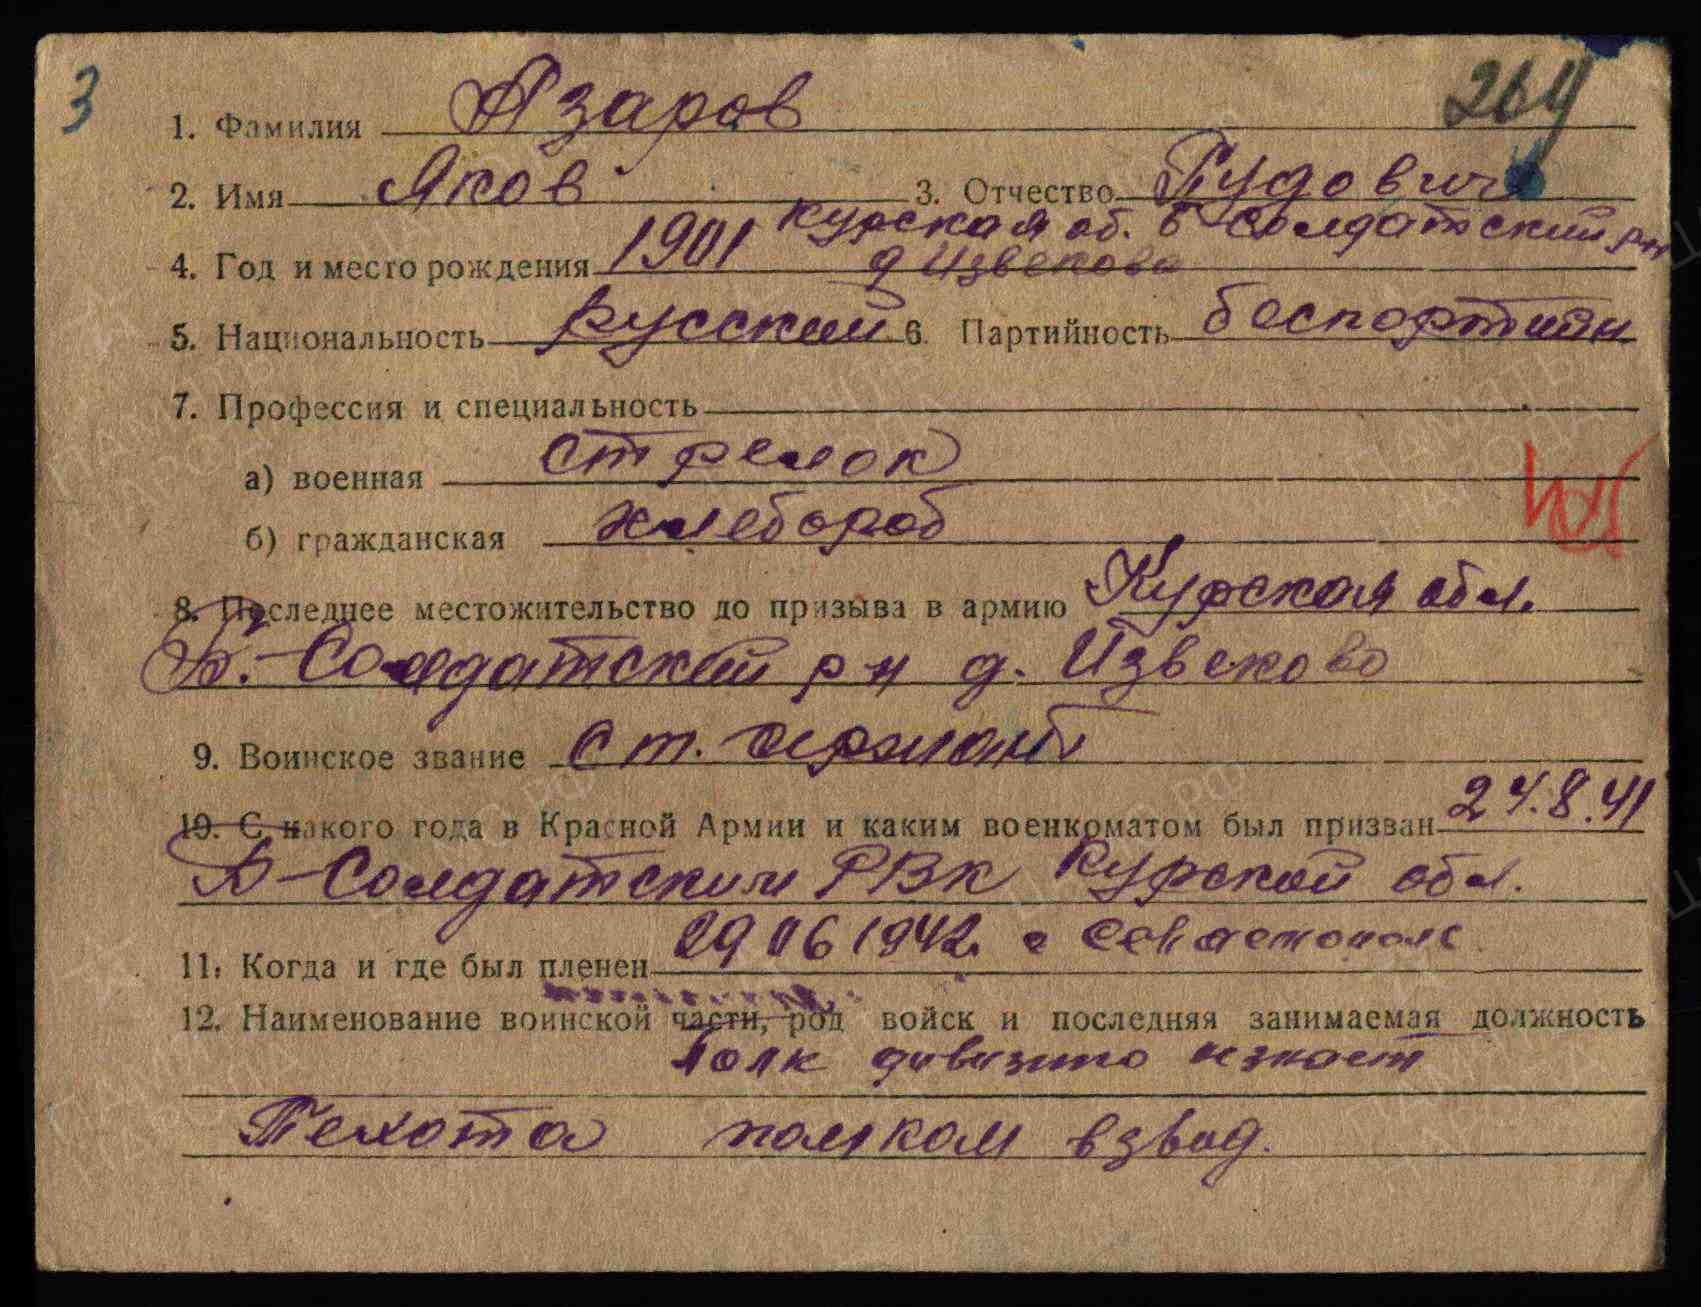 3
264
1. Фамилия Азаров
2. Имя Яков 3. Отчество Гудович
Курская об. Б Солдатский рн
4. Год и место рождения 1901 д Извеково
5. Национальность русский 6. Партийность беспортийн
7. Профессия и специальность
а) военная стрелок
б) гражданская хлебороб
8. Последнее местожительство до призыва в армию Курская обл.
Б.-Солдатский рн д. Извеково
9. Воинское звание ст. сержант
10. С какого года в Красной Армии и каким военкоматом был призван 24.8.41
Б-Солдатским РВК Курской обл.
11. Когда и где был пленен 29 06 1942 г Севастополь
12. Наименование воинской части, род войск и последняя занимаемая должность
Полк дивизию незнает
Пехота помком взвод.